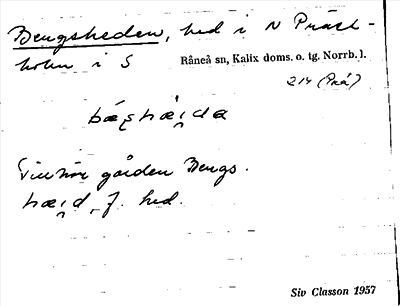 Bengsheden, hed i N Präst-
holm i S
Råneå sn, Kalix doms. o. tg. Norrb. l.
214 (Prä)
Tillhör gården Bengs.
hæi̯d, f. hed.
Siv Classon 1957